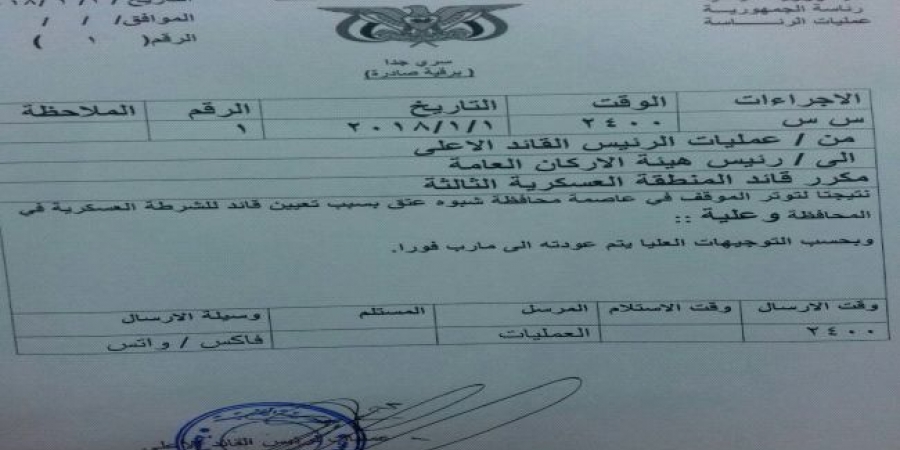 رئاسة الجمهورية
عمليات الرئاسة
الموافق/ / /
الرقم( ١ )
سري جدا
(برقية صادرة)
الاجراءات الوقت التاريخ الرقم الملاحظة
س س ٢٤٠٠ ٢٠١٨/١/١ ١
من / عمليات الرئيس القائد الاعلى
الى / رئيس هيئة الاركان العامة
مكرر قائد المنطقة العسكرية الثالثة
نتيجتا لتوتر الموقف في عاصمة محافظة شبوه عتق بسبب تعيين قائد للشرطة العسكرية في
المحافظة وعلية ::
وبحسب التوجيهات العليا يتم عودته الى مارب فورا.
وقت الارسال وقت الاستلام المرسل المستلم وسيلة الارسال
٢٤٠٠ العمليات فاكس / واتس
الرئيس القائد الاعلى